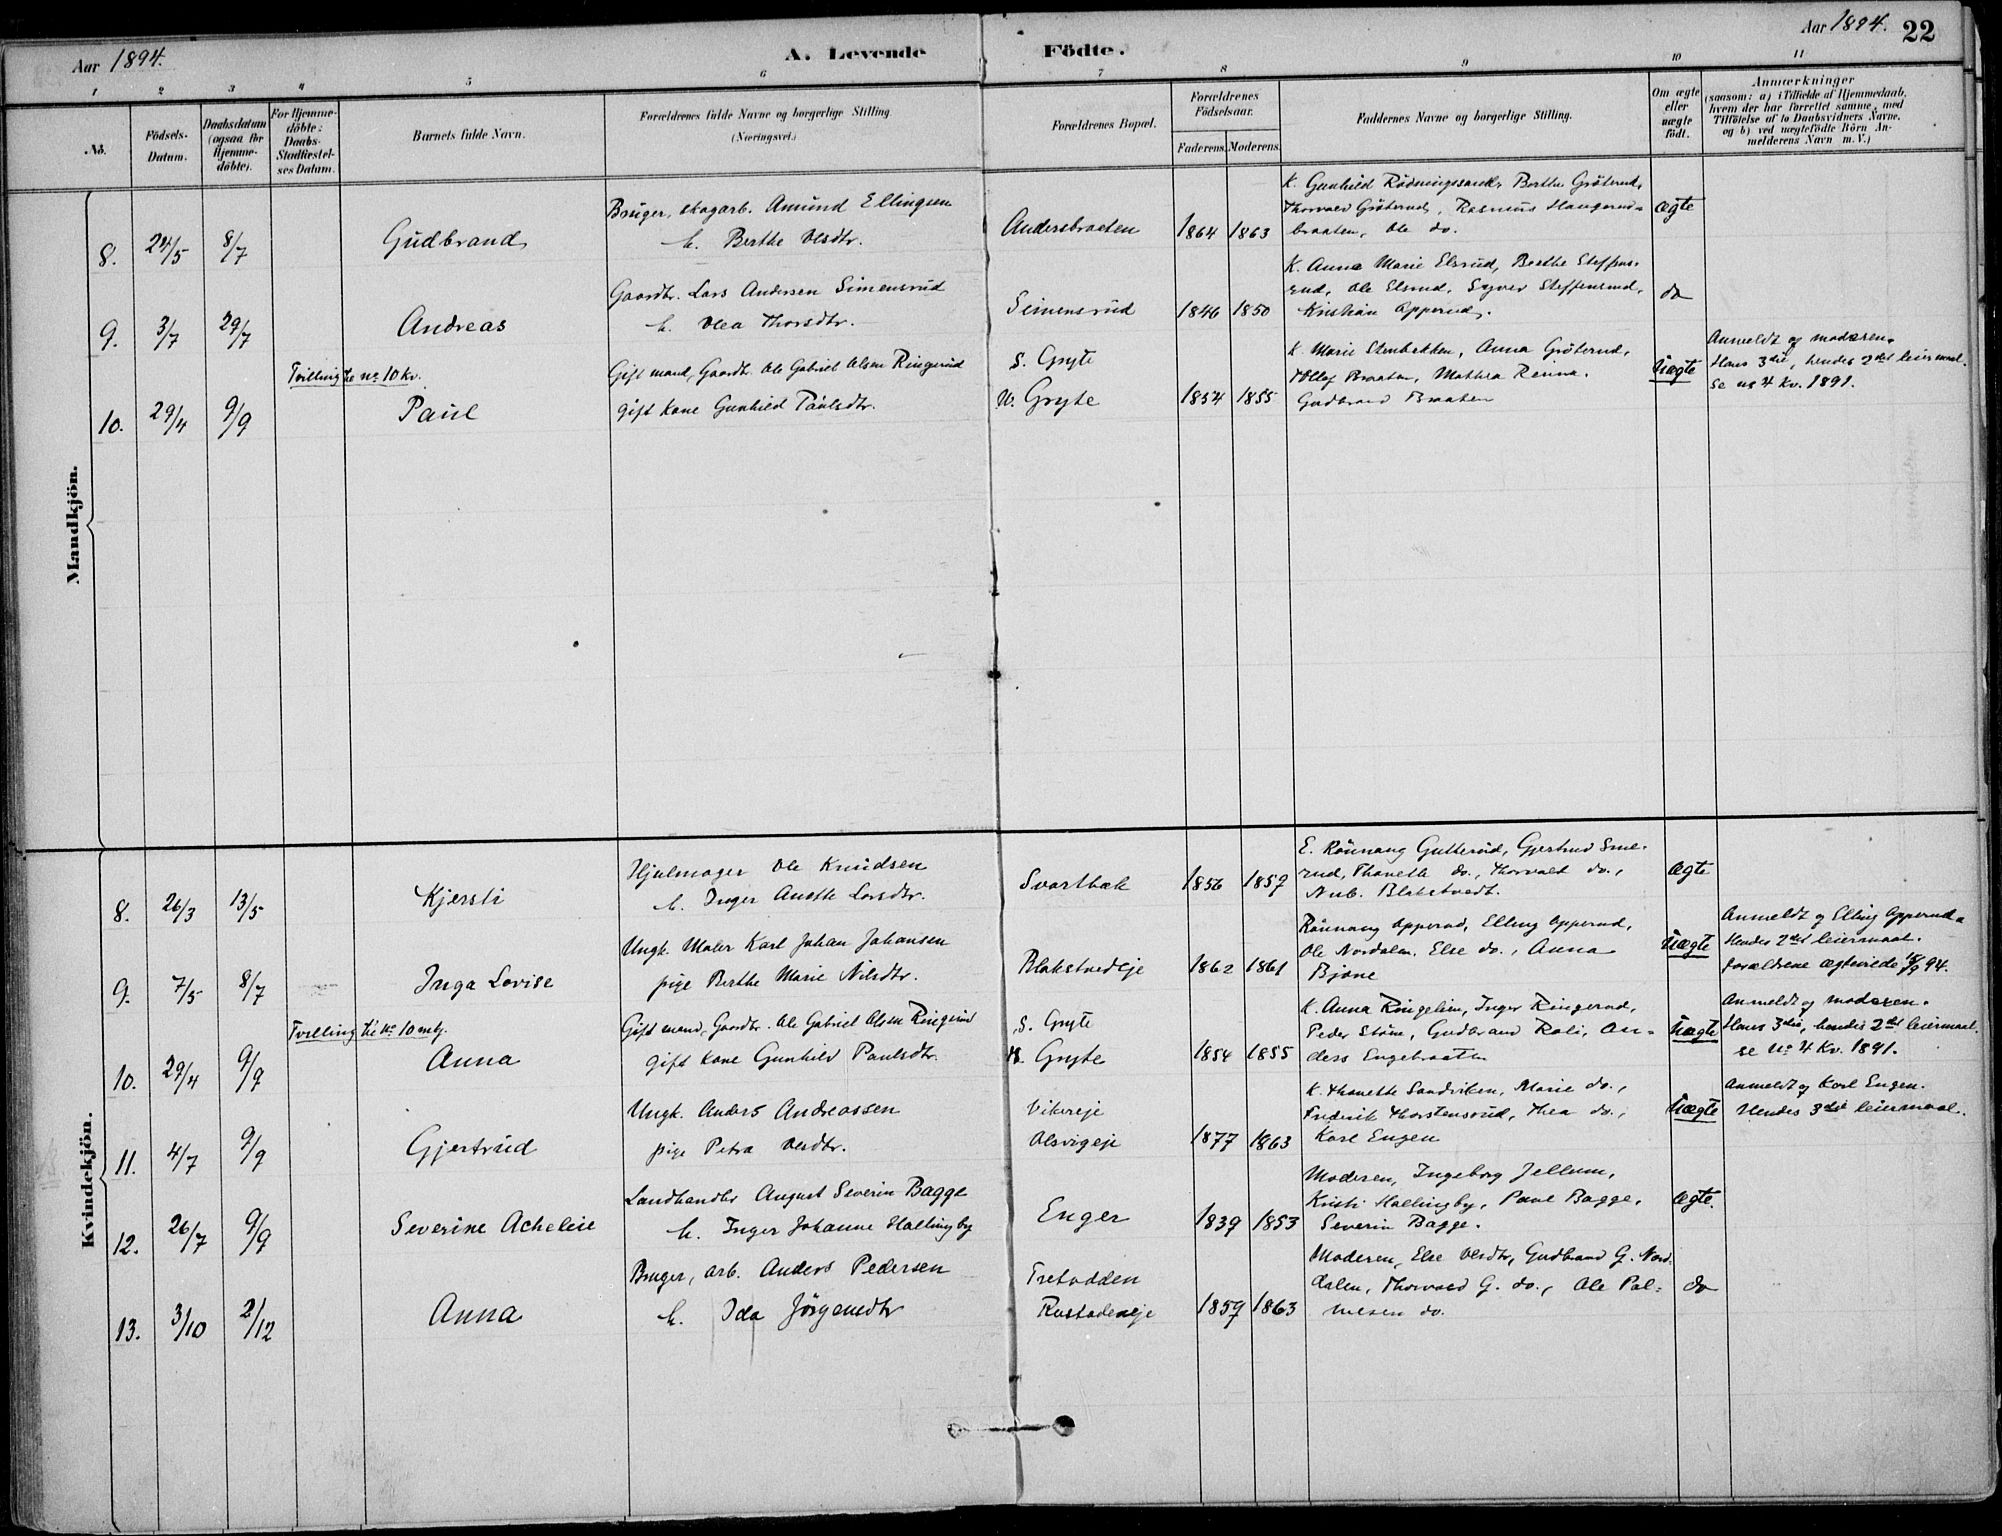 Aar 1894.
A. Levende Födte.
Aar 1894. 22
1 2 3 4 5 6 7 8 9 10 11
No.
Födsels-Datum.
Daabsdatum (ogsaa for Hjemme-döbte).
For Hjemme-döbte: Daabs-Stadfæstel-ses Datum.
Barnets fulde Navn.
Forældrenes fulde Navne og borgerlige Stilling. (Næringsvei.)
Forældrenes Bopæl.
Forældrenes Födselsaar.
Faderens. Moderens.
Faddernes Navne og borgerlige Stilling.
Om ægte eller uægte födt.
Anmærkninger (saasom: a) i Tilfælde af Hjemmedaab, hvem der har forrettet samme, med Tilföielse af to Daabsvidners Navne, og b) ved uægtefödte Börn An-melderens Navn m. V.)
Mandkjön.
8. 24/5 8/7 Gudbrand
Bruger, skogarb. Amund Ellingsen
h. Berthe Olsdtr.
Andersbraaten 1864 1863
K. Gunhild Rødningssand, Berthe Grøterud,
Thorvald Grøterud, Rasmus Haugerud-
braaten, Ole do.
ægte
9. 3/7 29/7 Andreas
Gaardbr. Lars Andersen Simensrud
h. Olea Thorsdtr.
Simensrud 1846 1850
K. Anna Marie Elsrud, Berthe Steffens-
rud, Ole Elsrud, Syver Steffensrud,
Kristian Opperud.
do
Tvilling til no 10 kv.
10. 29/4 9/9 Paul
Gift mand, Gaardb. Ole Gabriel Olsen Ringerud
gift kone Gunhild Paulsdtr.
S. Gryte
N. Gryte 1854 1855
K. Marie Stenbekken, Anna Grøterud,
Olaf Braaten, Mathea Renna.
Gudbrand Braaten
uægte
Anmeldt af moderen.
Hans 3die, hendes 2det leiermaal.
se no 4 Kv. 1891.
Kvindekjön.
8. 26/3 13/5 Kjersti
Hjulmager Ole Knudsen
h. Inger Anette Larsdtr.
Svartbæk 1856 1857
E. Rønnaug Gutterud, Gjertrud Sme-
rud, Thanette do., Thorvald do.,
Nub. Blakstvedt.
ægte
9. 7/5 8/7 Inga Lovise
Ungk. Maler Karl Johan Johansen
pige Berthe Marie Nilsdtr.
Blakstvedeje 1862 1861
Rønnaug Opperud, Elling Opperud,
Ole Nordalen, Else do., Anna
Bjone
uægte
Anmeldt af Elling Opperud.
Hendes 2det leiermaal.
forældrene ægteviede 16/9 94.
Tvilling til no 10 mkj.
10. 29/4 9/9 Anna
Gift mand, Gaardbr. Ole Gabriel Olsen Ringerud
gift kone Gunhild Paulsdtr.
S. Gryte
N. Gryte 1854 1855
K. Anna Ringelien, Inger Ringerud,
Peder Støne, Gudbrand Roli, An-
ders Engebraaten
uægte
Anmeldt af moderen.
Hans 3die, hendes 2det leiermaal.
se no 4 Kv. 1891.
11. 4/7 9/9 Gjertrud
Ungk. Anders Andreassen
pige Petra Olsdtr.
Vikereje
Olsvigeje 1877 1863
K. Thanette Sandviken, Marie do.,
Frederik Thorstensrud, Thea do.,
Karl Engen
uægte
Anmeldt af Karl Engen.
Hendes 3die leiermaal.
12. 26/7 9/9 Severine Achelie
Landhandler August Severin Bagge
h. Inger Johanne Hallingby
Enger 1839 1853
Moderen, Ingeborg Jellum,
Kristi Hallingby, Paul Bagge,
Severin Bagge.
ægte.
13. 3/10 2/12 Anna
Bruger, arb. Anders Pedersen
h. Ida Jørgensdtr
Tretodden
Rustadeneje 1859 1863
Moderen, Else Olsdtr, Gudbrand G. Nor-
dalen, Thorvald G. do., Ole Pal-
mesen do.
do